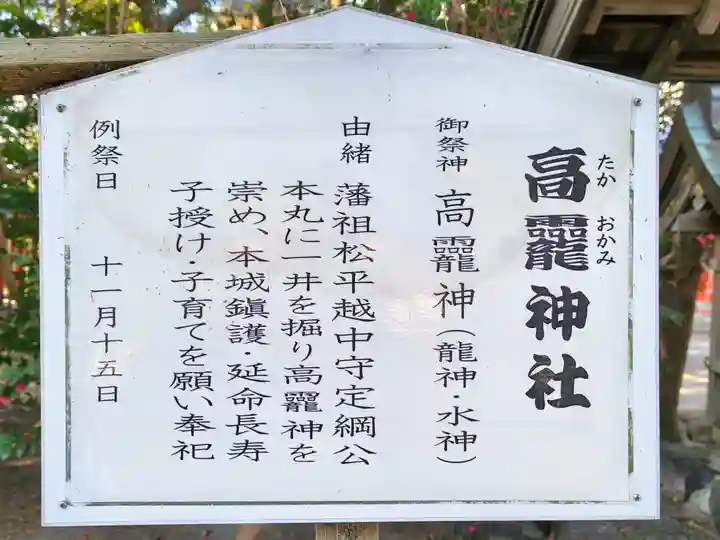 高龗神社
たか おかみ
御祭神 高龗神(龍神・水神)
由緒 藩祖松平越中守定綱公
本丸に一井を掘り高龗神を
崇め、本城鎭護・延命長寿
子授け・子育てを願い奉祀
例祭日 十一月十五日